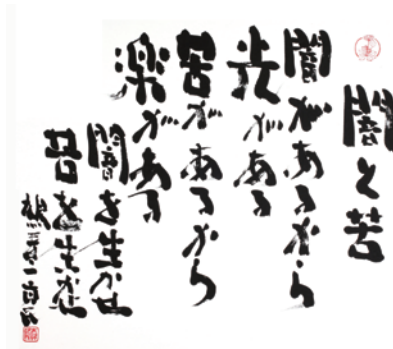 闇と苦
闇があるから
光がある
苦があるから
楽がある
闇を生かせ
苦を生かせ